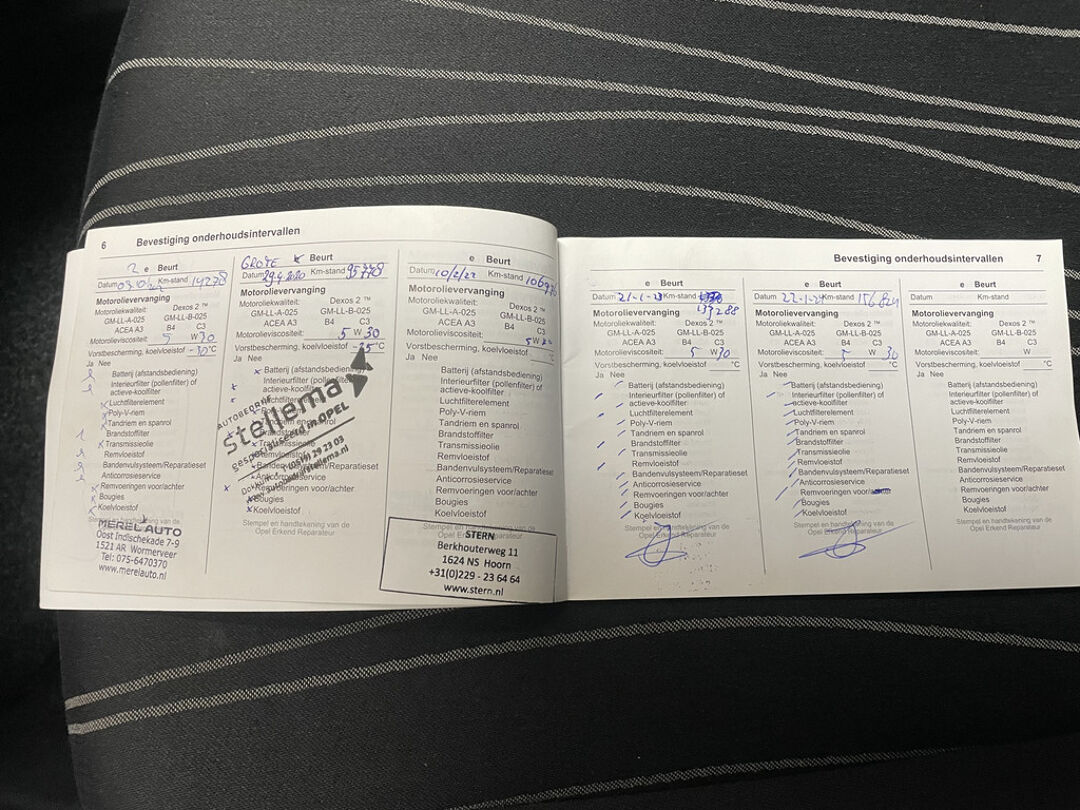 6 Bevestiging onderhoudsintervallen
2 e Beurt
Datum Km-stand
Motorolievervanging
Motoroliekwaliteit: Dexos 2 ™
GM-LL-A-025 GM-LL-B-025
ACEA A3 B4 C3
Motorolieviscositeit: 5 W 30
Vorstbescherming, koelvloeistof -30 °C
Ja Nee
Batterij (afstandsbediening)
Interieurfilter (pollenfilter) of
actieve-koolfilter
Luchtfilterelement
Poly-V-riem
Tandriem en spanrol
Brandstoffilter
Transmissieolie
Remvloeistof
Bandenvulsysteem/Reparatieset
Anticorrosieservice
Remvoeringen voor/achter
Bougies
Koelvloeistof
Stempel en handtekening van de
MEREL AUTO
Oost Indischekade 7-9
1521 AR Wormerveer
Tel: 075-6470370
www.merelauto.nl
GROTE Beurt
Datum 29.4.2020 Km-stand 95778
Motorolievervanging
Motoroliekwaliteit: Dexos 2 ™
GM-LL-A-025 GM-LL-B-025
ACEA A3 B4 C3
Motorolieviscositeit: 5 W 30
Vorstbescherming, koelvloeistof -25 °C
Ja Nee
Batterij (afstandsbediening)
Interieurfilter (pollenfilter) of
actieve-koolfilter
Luchtfilterelement
Transmissieolie
Remvloeistof
Bandenvulsysteem/Reparatieset
Anticorrosieservice
Remvoeringen voor/achter
Bougies
Koelvloeistof
AUTOBEDRIJF
Stellema
gespecialiseerd in OPEL
Stempel en handtekening van de
Opel Erkend Reparateur
e Beurt
Datum 10/2/22 Km-stand 106976
Motorolievervanging
Motoroliekwaliteit: Dexos 2 ™
GM-LL-A-025 GM-LL-B-025
ACEA A3 B4 C3
Motorolieviscositeit: 5 W
Vorstbescherming, koelvloeistof °C
Ja Nee
Batterij (afstandsbediening)
Interieurfilter (pollenfilter) of
actieve-koolfilter
Luchtfilterelement
Poly-V-riem
Tandriem en spanrol
Brandstoffilter
Transmissieolie
Remvloeistof
Bandenvulsysteem/Reparatieset
Anticorrosieservice
Remvoeringen voor/achter
Bougies
Koelvloeistof
Stempel en handtekening van de
Opel Erkend Reparateur
STERN
Berkhouterweg 11
1624 NS Hoorn
+31(0)229 - 23 64 64
www.stern.nl
Bevestiging onderhoudsintervallen 7
e Beurt
Datum 21-1-23 Km-stand
133288
Motorolievervanging
Motoroliekwaliteit: Dexos 2 ™
GM-LL-A-025 GM-LL-B-025
ACEA A3 B4 C3
Motorolieviscositeit: 5 W 30
Vorstbescherming, koelvloeistof °C
Ja Nee
Batterij (afstandsbediening)
Interieurfilter (pollenfilter) of
actieve-koolfilter
Luchtfilterelement
Poly-V-riem
Tandriem en spanrol
Brandstoffilter
Transmissieolie
Remvloeistof
Bandenvulsysteem/Reparatieset
Anticorrosieservice
Remvoeringen voor/achter
Bougies
Koelvloeistof
Stempel en handtekening van de
Opel Erkend Reparateur
e Beurt
Datum 22-1-24 Km-stand 156824
Motorolievervanging
Motoroliekwaliteit: Dexos 2 ™
GM-LL-A-025 GM-LL-B-025
ACEA A3 B4 C3
Motorolieviscositeit: 5 W 30
Vorstbescherming, koelvloeistof °C
Ja Nee
Batterij (afstandsbediening)
Interieurfilter (pollenfilter) of
actieve-koolfilter
Luchtfilterelement
Poly-V-riem
Tandriem en spanrol
Brandstoffilter
Transmissieolie
Remvloeistof
Bandenvulsysteem/Reparatieset
Anticorrosieservice
Remvoeringen voor/achter
Bougies
Koelvloeistof
Stempel en handtekening van de
Opel Erkend Reparateur
e Beurt
Datum Km-stand
Motorolievervanging
Motoroliekwaliteit: Dexos 2 ™
GM-LL-A-025 GM-LL-B-025
ACEA A3 B4 C3
Motorolieviscositeit: W
Vorstbescherming, koelvloeistof °C
Ja Nee
Batterij (afstandsbediening)
Interieurfilter (pollenfilter) of
actieve-koolfilter
Luchtfilterelement
Poly-V-riem
Tandriem en spanrol
Brandstoffilter
Transmissieolie
Remvloeistof
Bandenvulsysteem/Reparatieset
Anticorrosieservice
Remvoeringen voor/achter
Bougies
Koelvloeistof
Stempel en handtekening van de
Opel Erkend Reparateur